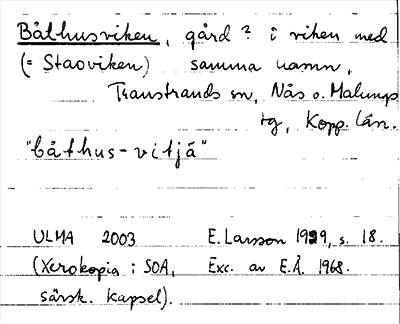 Båthusviken, gård? i viken med
(= Staoviken) samma namn,
Transtrands sn, Nås o. Malungs
tg, Kopp. län.
"båthus-vitjä"
ULMA 2003 E. Larsson 1929, s. 18.
(Xerokopia i SOA, Exc. av E.Å. 1968.
särsk. kapsel).